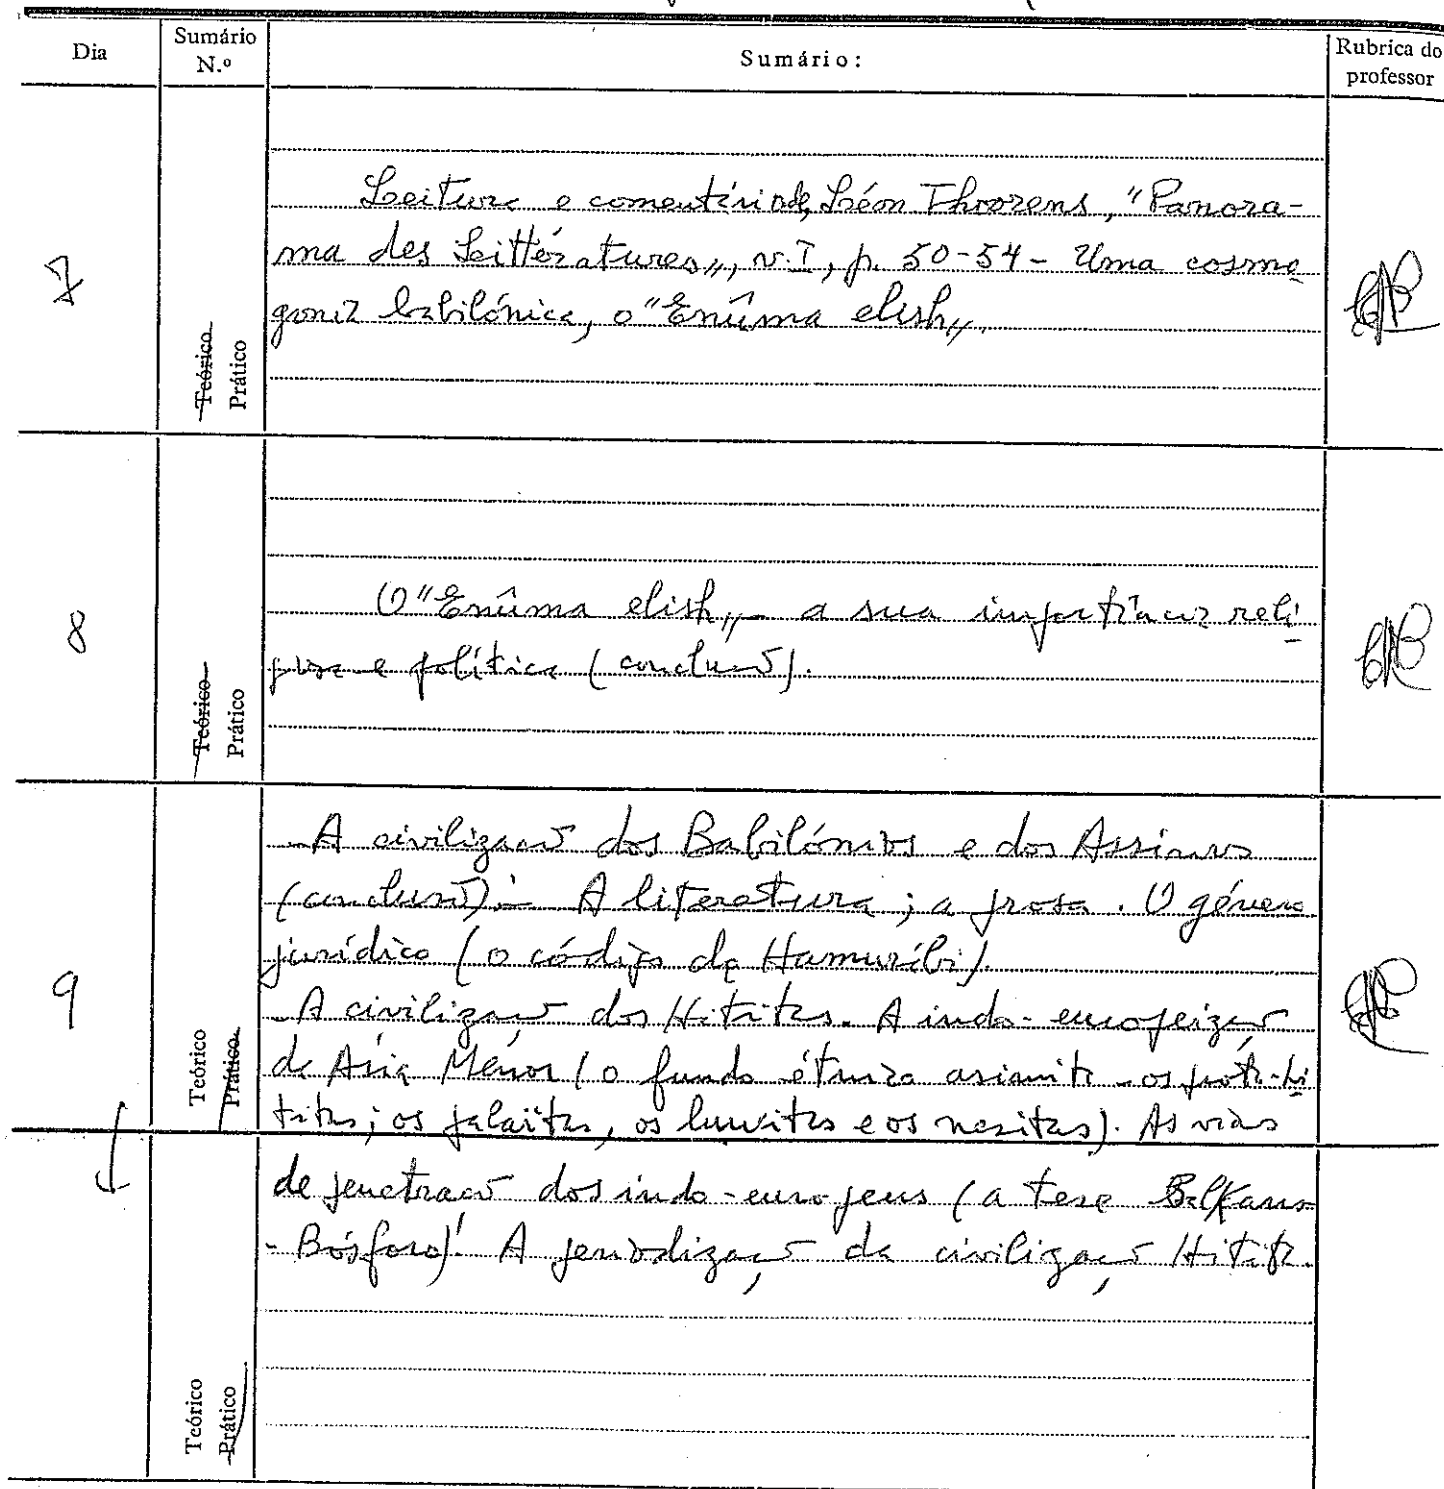 Dia Sumário N.º Sumário: Rubrica do professor
7
Teórico Prático
Leitura e comentário de Léon Thoorens, "Panora-
ma des Littératures", v. I, p. 50-54 - Uma cosmo
gonia babilónica, o "Enûma elish".
8
Teórico Prático
O "Enûma elish" - a sua importância reli
giosa e política (conclusão).
9
Teórico Prático
- A civilização dos Babilónios e dos Assírios
(conclusão): - A literatura; a prosa. O género
jurídico (o código de Hamurábi).
- A civilização dos Hititas. A indo-europeização
da Ásia Menor (o fundo étnico asianita - os proto-hi
titas; os palaítas, os luvitas e os nesitas). As vias
Teórico Prático
de penetração dos indo-europeus (a tese Balkans
- Bósforo). A periodização da civilização Hitita.